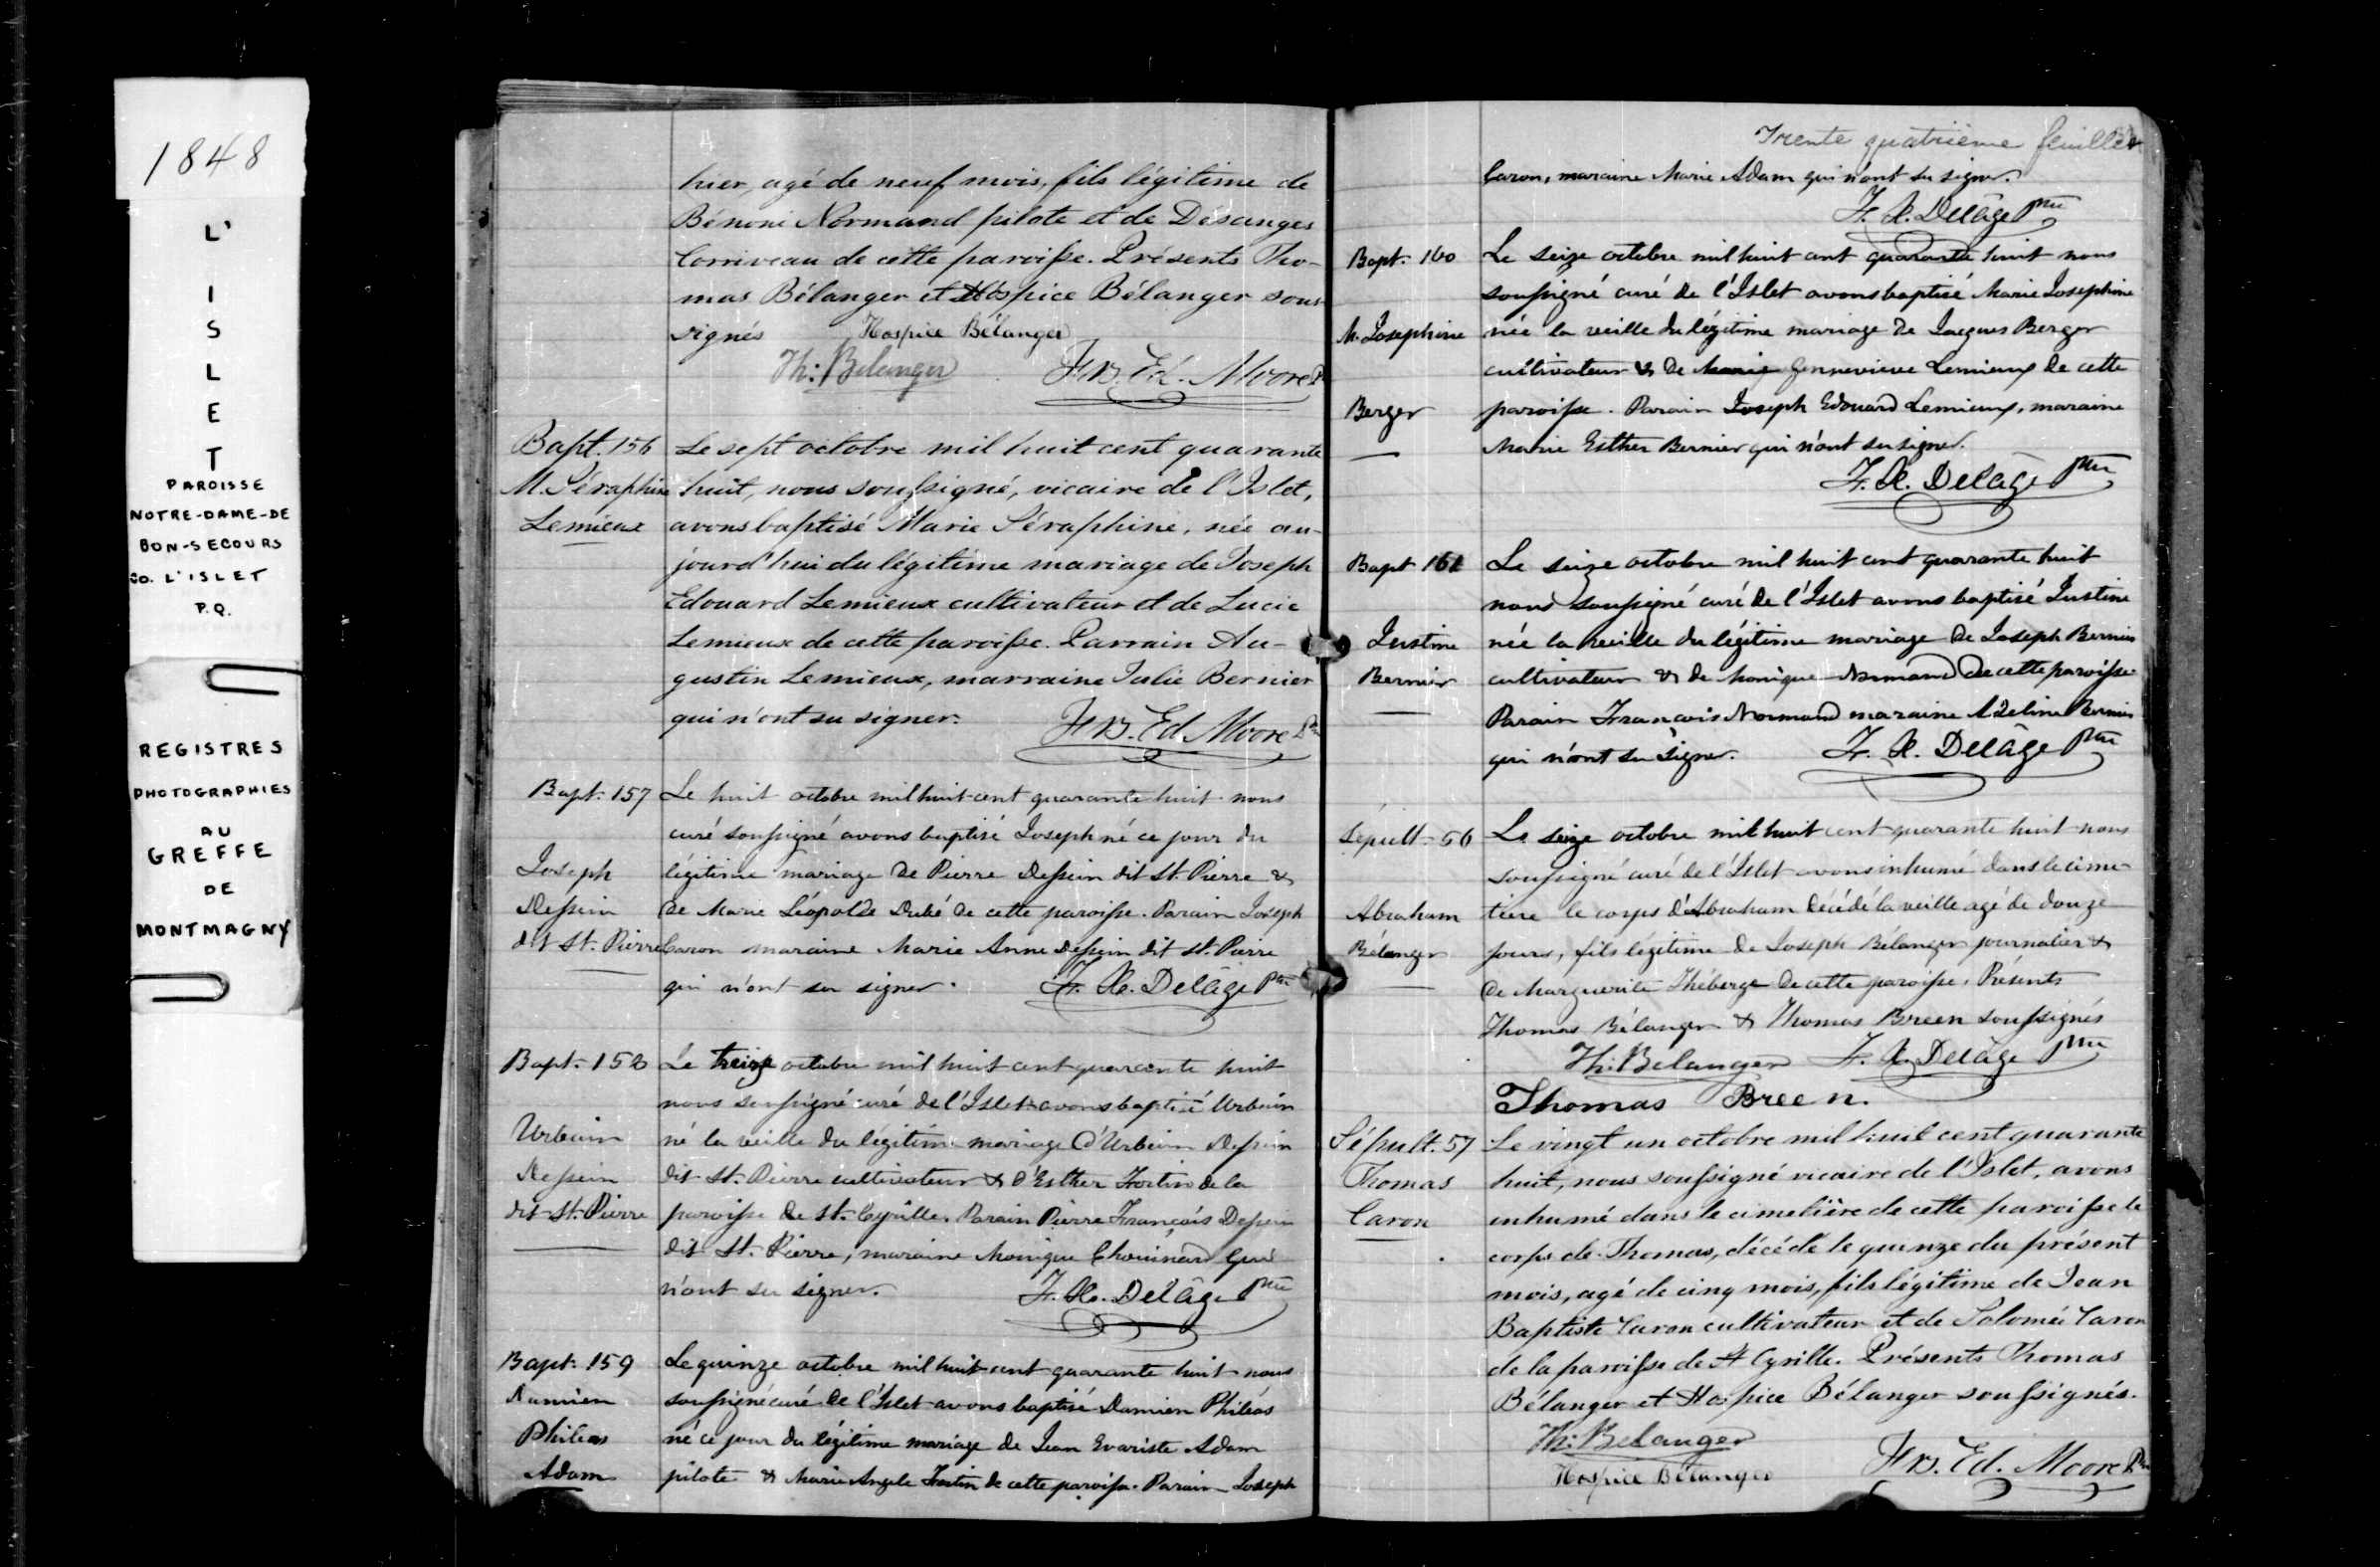 1848
L'
I
S
L
E
T
PAROISSE
NOTRE-DAME-DE
BON-SECOURS
CO. L'ISLET
P.Q.
REGISTRES
PHOTOGRAPHIES
AU
GREFFE
DE
MONTMAGNY
hier, agé de neuf mois, fils légitime de
Bénoni Normand pilote et de Désanges
Corriveau de cette paroisse. Présents Tho-
mas Bélanger et Hospice Bélanger sous-
signés Hospice Bélanger
Th: Belanger Frs. Ed. Moore Ptre
Bapt. 156 Le sept octobre mil huit cent quarante
M. Séraphine huit, nous soussigné, vicaire de l'Islet,
Lemieux avons baptisé Marie Séraphine, née au-
jourd'hui du légitime mariage de Joseph
Edouard Lemieux cultivateur et de Lucie
Lemieux de cette paroisse. Parrain Au-
gustin Lemieux, marraine Julie Bernier
qui n'ont su signer. Frs. Ed. Moore Ptre
Bapt. 157 Le huit octobre mil huit cent quarante huit nous
curé soussigné avons baptisé Joseph né ce jour du
Joseph légitime mariage de Pierre Dessein dit St. Pierre &
Dessein de Marie Léopolde Dubé de cette paroisse. Parain Joseph
dit St. Pierre Caron maraine Marie Anne Dessein dit St. Pierre
qui n'ont su signer. F. X. Delâge Ptre
Bapt. 158 Le treize octobre mil huit cent quarante huit
nous soussigné curé de l'Islet avons baptisé Urbain
Urbain né la veille du légitime mariage d'Urbain Dessein
Dessein dit St. Pierre cultivateur & d'Esther Fortin de la
dit St. Pierre paroisse de St. Cyrille. Parain Pierre François Dessein
dit St. Pierre, maraine Monique Chouinard qui
n'ont su signer. F. X. Delâge Ptre
Bapt. 159 Le quinze octobre mil huit cent quarante huit nous
Damien soussigné curé de l'Islet avons baptisé Damien Philéas
Philéas né ce jour du légitime mariage de Jean Evariste Adam
Adam pilote & Marie Angele Fortin de cette paroisse. Parain Joseph
Trente quatrième feuillet
Caron, maraine Marie Adam qui n'ont su signer.
F. X. Delâge Ptre
Bapt. 160 Le seize octobre mil huit cent quarante huit nous
soussigné curé de l'Islet avons baptisé Marie Josephine
M. Josephine née la veille du légitime mariage de Jacques Berger
cultivateur & de Marie Gennevieve Lemieux de cette
Berger paroisse. Parain Joseph Edouard Lemieux, maraine
Marie Esther Bernier qui n'ont su signer.
F. X. Delâge Ptre
Bapt 161 Le seize octobre mil huit cent quarante huit
nous soussigné curé de l'Islet avons baptisé Justine
Justine née la veille du légitime mariage de Joseph Bernier
Bernier cultivateur & de Monique Normand de cette paroisse
Parain François Normand maraine Adeline Bernier
qui n'ont su signer. F. X. Delâge Ptre
Sépult. 56 Le seize octobre mil huit cent quarante huit nous
soussigné curé de l'Islet avons inhumé dans le cime-
Abraham tiere le corps d'Abraham décédé la veille agé de douze
Bélanger jours, fils légitime de Joseph Bélanger journalier &
de Marguerite Théberge de cette paroisse. Présents
Thomas Bélanger & Thomas Breen soussignés
Th: Belanger F. X. Delâge Ptre
Thomas Breen.
Sépult. 57 Le vingt un octobre mil huit cent quarante
Thomas huit, nous soussigné vicaire de l'Islet, avons
Caron inhumé dans le cimetière de cette paroisse le
corps de Thomas, décédé le quinze du présent
mois, agé de cinq mois, fils légitime de Jean
Baptiste Caron cultivateur et de Salomée Caron
de la paroisse de St Cyrille. Présents Thomas
Bélanger et Hospice Bélanger soussignés.
Th: Belanger
Hospice Bélanger Frs. Ed. Moore Ptre